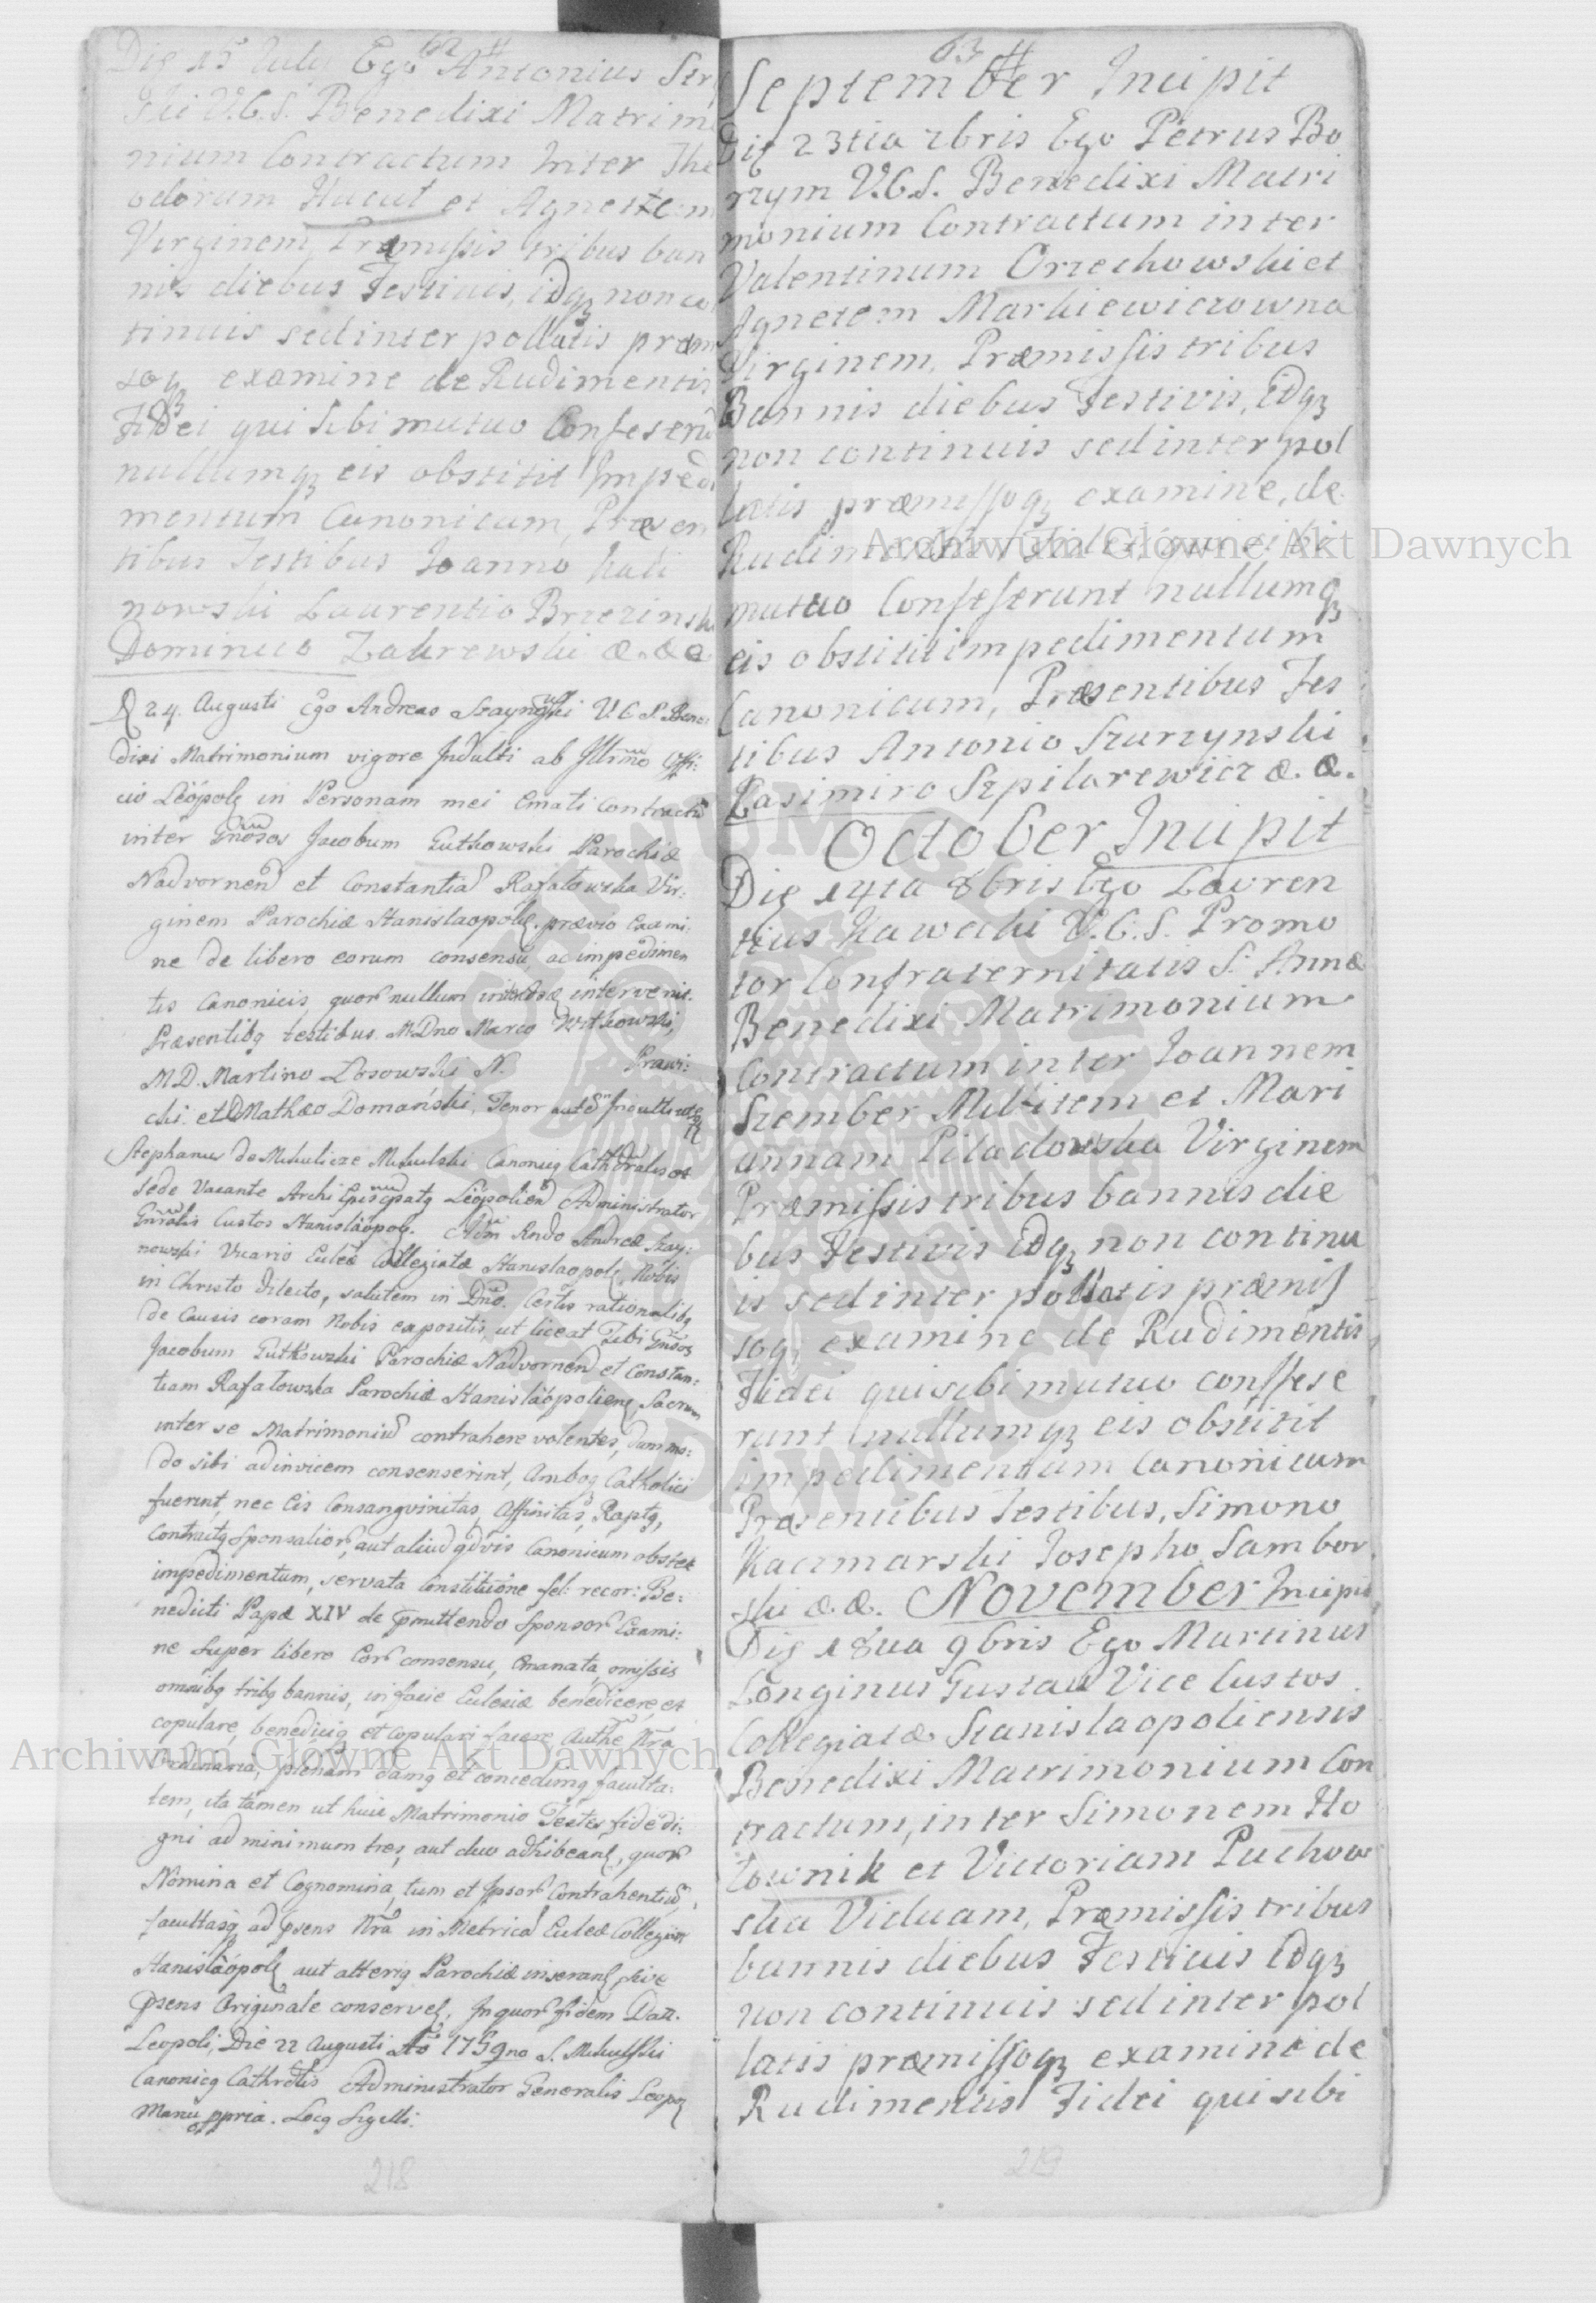 62 #
Die 15 July Ego Antonius
V.C.S. Benedixi Matrim
nium Contractum Inter The
odorum Hucul et Agnetem
Virginem, Præmissis tribus ban
nis diebus Festiuis, idq3 non co
tinuis sed inter pollatis præm
soq3 examine de Rudimentis
Fidei qui sibi mutuo Conseserū
nullumq3 eis obstitit Impedi
mentum Canonicum, Præsen
tibus Testibus Joanno Kali
nowski Laurentio Brzezinski
Dominico Zakrewski &. &. &
D 24. Augusti Ego Andreas Szaynowski V C S Bene
dixi Matrimonium vigore Indulti ab Illrmo Offi:
cio Leopolẽ in Personam mei Emati Contractū
inter Gnosos Jacobum Gutkowski Parochiæ
Nadvornen et Constantiã Rafalowska Vir:
ginem Parochiæ Stanislaopolẽ. prævio Exami:
ne de libero eorum consensu, ac impedimen
tis Canonicis, quor nullum intervenit.
Præsentibq testibus M.Dno Marco Witkowski,
M.D. Martino Łosowski N. Prawi:
cki et D Mathæo Domański, Tenor autẽ
Stephanus de Mikulicze Mikulski Canonicq Cathedralis et
Sede Vacante Archi Episcopatq Leopolien Administrator
Gnralis Custos Stanislaopolẽ. Adm Rndo Andreæ Szay:
nowski Vicario Ecclæ Collegiatæ Stanislaopolẽ, Nobis
in Christo Dilecto, salutem in Dno. Certis rationalibq
de Causis coram Nobis expositis, ut liceat Tibi Gnsos
Jacobum Gutkowski Parochiæ Nadvornen et Constan:
tiam Rafalowska Parochiæ Stanislaopolienẽ Sacrum
inter se Matrimoniū contrahere volentes, dummo:
do sibi adinvicem consenserint, Ambog Catholici
fuerint, nec Eis Consangvinitas, Affinitas, Raptq,
Contractq Sponsalior, aut aliud qdvis Canonicum obstet
impedimentum, servata Constitutione fel: recor: Be:
nedicti Papæ XIV de pmittendo Sponsor Exami:
ne super libero Eor consensu, Emanata, omissis
omnibq tribq bannis, in facie Ecclesiæ benedicere, et
copulare, benedicig et copulari facere Authe Nra
Ordinaria, plenam damq et concedimq faculta:
tem, ita tamen ut huic Matrimonio Testes fide di:
gni ad minimum tres, aut duo adhibeanẽ, quor
Nomina et Cognomina, tum et Ipsor Contrahentiū,
facultasq ad psens Nra in Metrica Ecclæ Collegiatæ
Stanislaopolẽ aut alterig Parochiæ inseranẽ sive
psens Originale conservẽ, In quor fidem Datt.
Leopoli, Die 22 Augusti Ao 1759no S. Mikulski
Canonicq Cathrlis Administrator Generalis Leopẽ
Manu ppria. Locq Sigilli.
218
63 #
September Incipit
Die 23tia 7bris Ego Petrus Bo
rzym V.C.S. Benedixi Matri
monium Contractum inter
Valentinum Orzechowski et
Agnetem Markiewiczowna
Virginem, Præmissis tribus
Bannis diebus Festivis, idq3
non continuis sed inter pol
latis præmissoq3 examine, de
Rudimentis Fidei, qui sibi
mutuo Conseserunt nullumq3
eis obstitit impedimentum
Canonicum, Præsentibus Tes
tibus Antonio Skarzynski
Casimiro Szpilarewicz &. &.
October Incipit
Die 14ta 8bris Ego Lauren
tius Kawecki V.C.S. Promo
tor Confraternitatis S. Annæ
Benedixi Matrimonium
Contractum inter Joannem
Szember Militem et Mari
annam Piladowska Virginem
Præmissis tribus bannis die
bus Festivis idq3 non continu
is sed inter pollatis præmis
soq3 examine de Rudimentis
Fidei qui sibi mutuo consese
runt nullumq3 eis obstitit
impedimentum Canonicum
Præsentibus testibus, Simono
Kaczmarski Josepho Sambor
ski &. &. November Incipit
Die 18va 9bris Ego Martinus
Longinus Gustaw Vice Custos
Collegiatæ Stanislaopoliensis
Benedixi Matrimonium Con
tractum, inter Simonem Ho
townik et Victoriam Puchow
ska Viduam, Præmissis tribus
bannis diebus Festiuis idq3
non continuis sed inter pol
latis præmissoq3 examine de
Rudimentis Fidei qui sibi
219
Archiwum Główne Akt Dawnych
Archiwum Główne Akt Dawnych